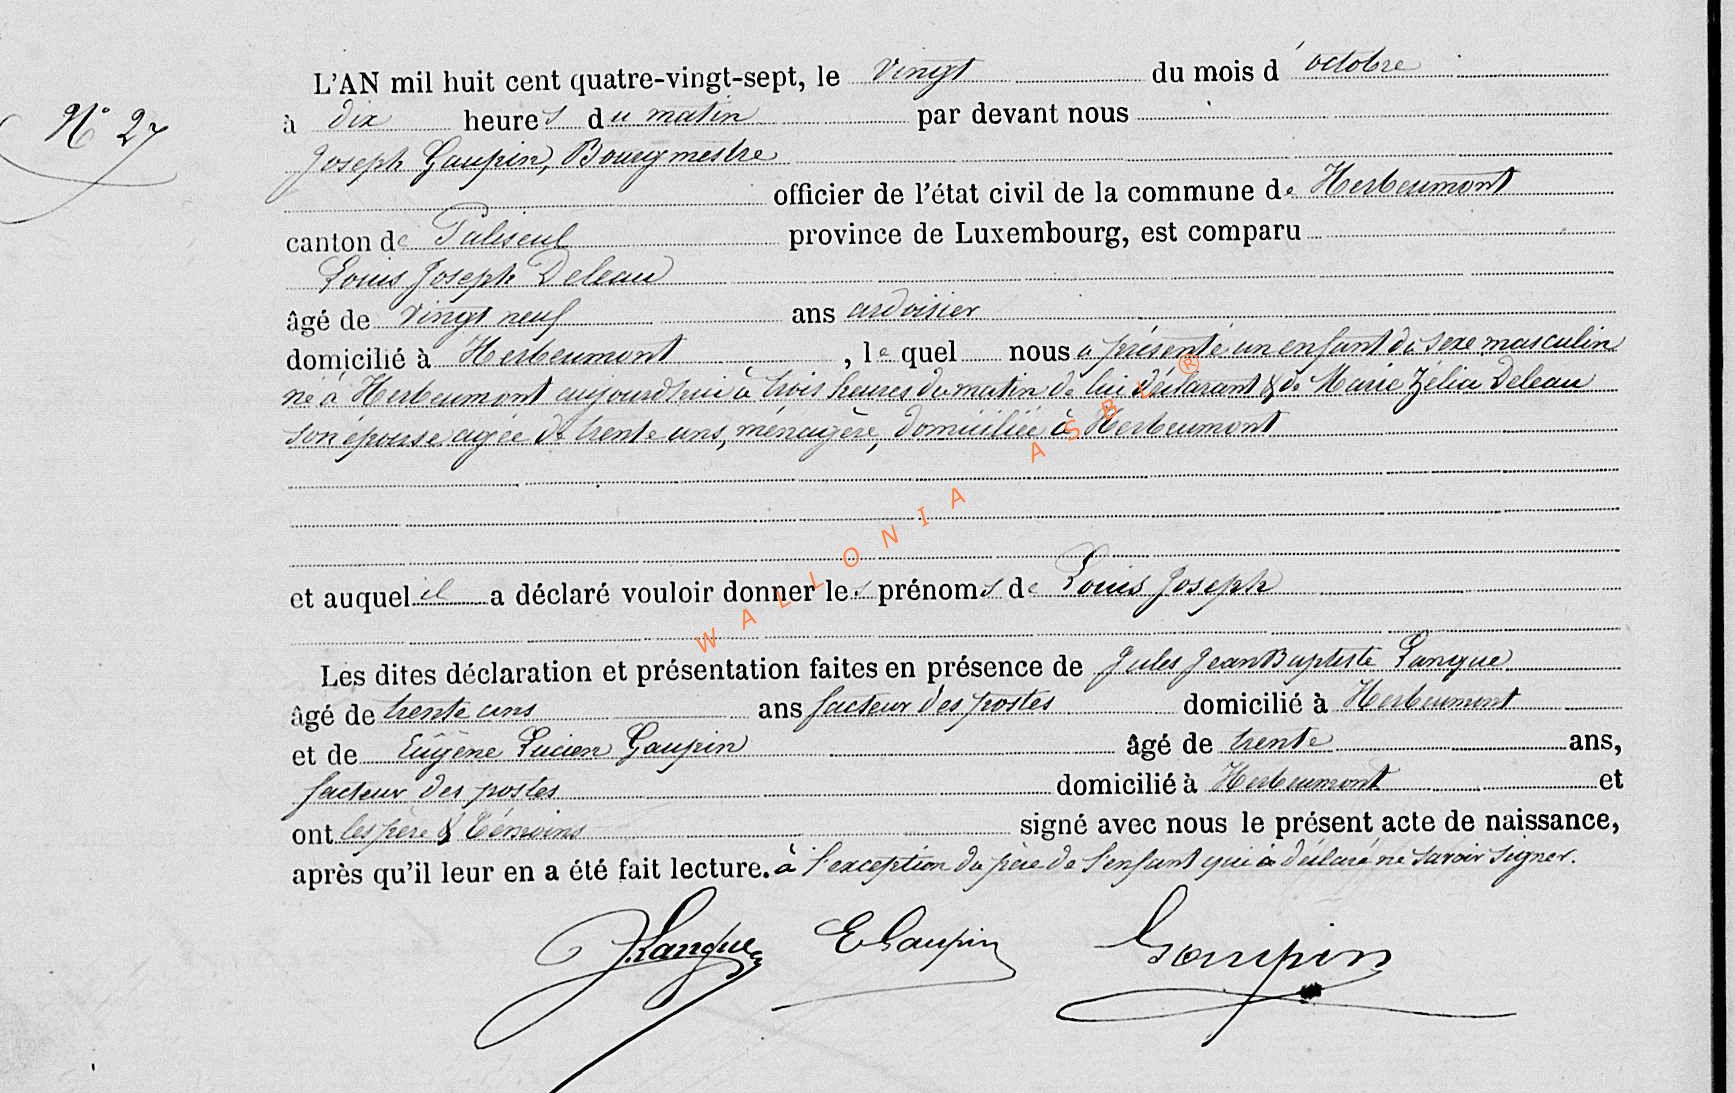 L'AN mil huit cent quatre-vingt-sept, le vingt du mois d'octobre
N° 27
à dix heures du matin par devant nous
Joseph Gaupin, Bourgmestre
officier de l'état civil de la commune de Herbeumont
canton de Paliseul province de Luxembourg, est comparu
Louis Joseph Deleau
âgé de vingt neuf ans ardoisier
domicilié à Herbeumont, lequel nous a présenté un enfant du sexe masculin
né à Herbeumont aujourd'hui à trois heures du matin de lui déclarant & de Marie Zélia Deleau
son épouse agée de trente ans, ménagère, domiciliée à Herbeumont
et auquel il a déclaré vouloir donner les prénoms de Louis Joseph
Les dites déclaration et présentation faites en présence de Jules Jean Baptiste Langue
âgé de trente ans ans facteur des postes domicilié à Herbeumont
et de Eugène Lucien Gaupin âgé de trente ans,
facteur des postes domicilié à Herbeumont et
ont les père & témoins signé avec nous le présent acte de naissance,
après qu'il leur en a été fait lecture. à l'exception du père de l'enfant qui a déclaré ne savoir signer.
J. Langue E Gaupin Gaupin
WALLONIA ASBL ®